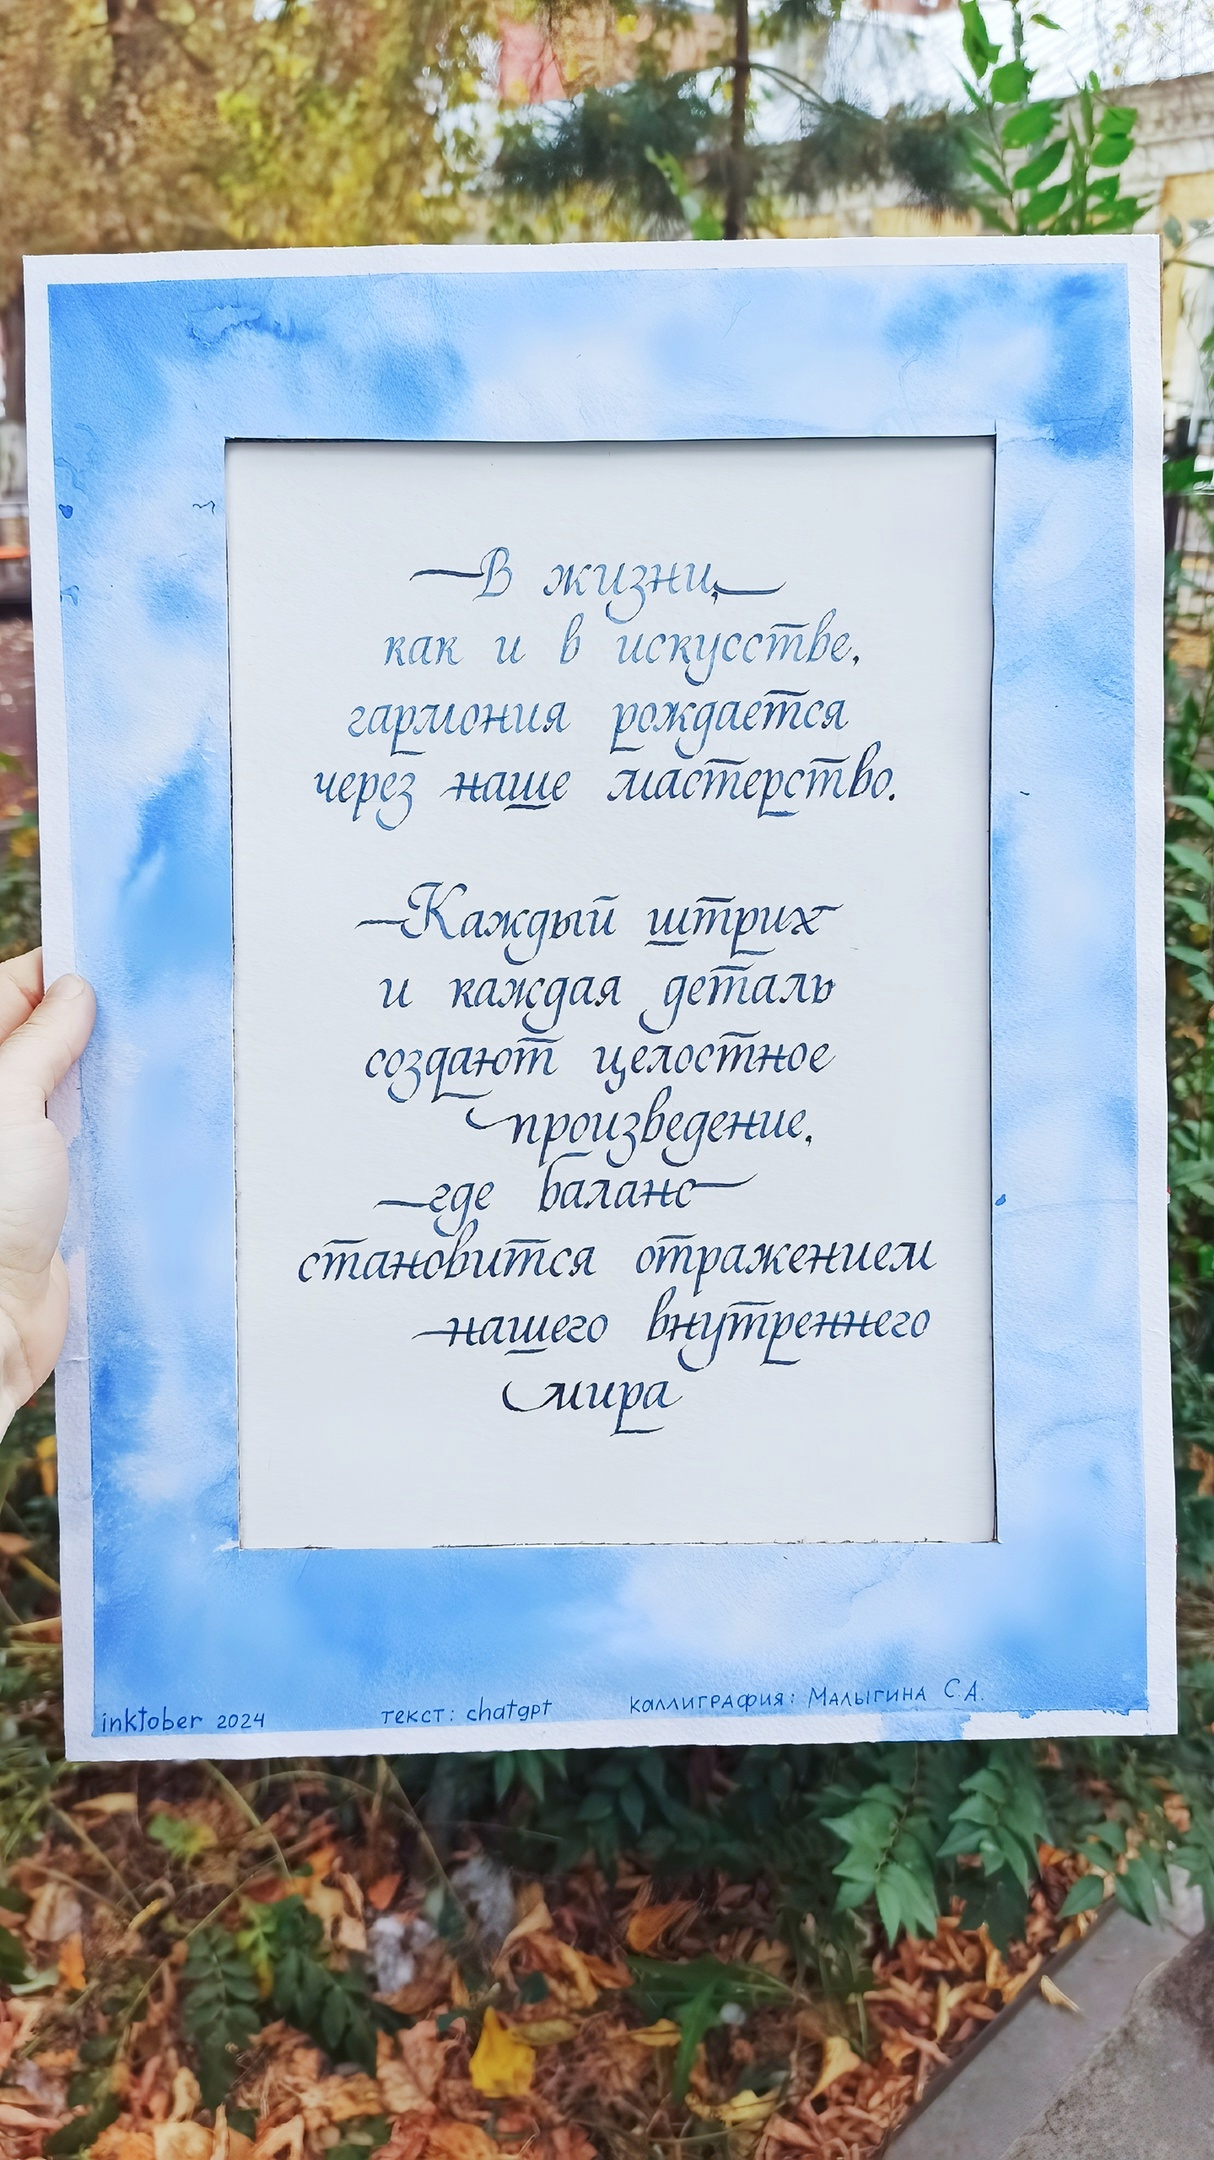 В жизни,
как и в искусстве,
гармония рождается
через наше мастерство.
Каждый штрих
и каждая деталь
создают целостное
произведение,
где баланс
становится отражением
нашего внутреннего
мира
inktober 2024
текст: chatgpt
каллиграфия: Малыгина С.А.